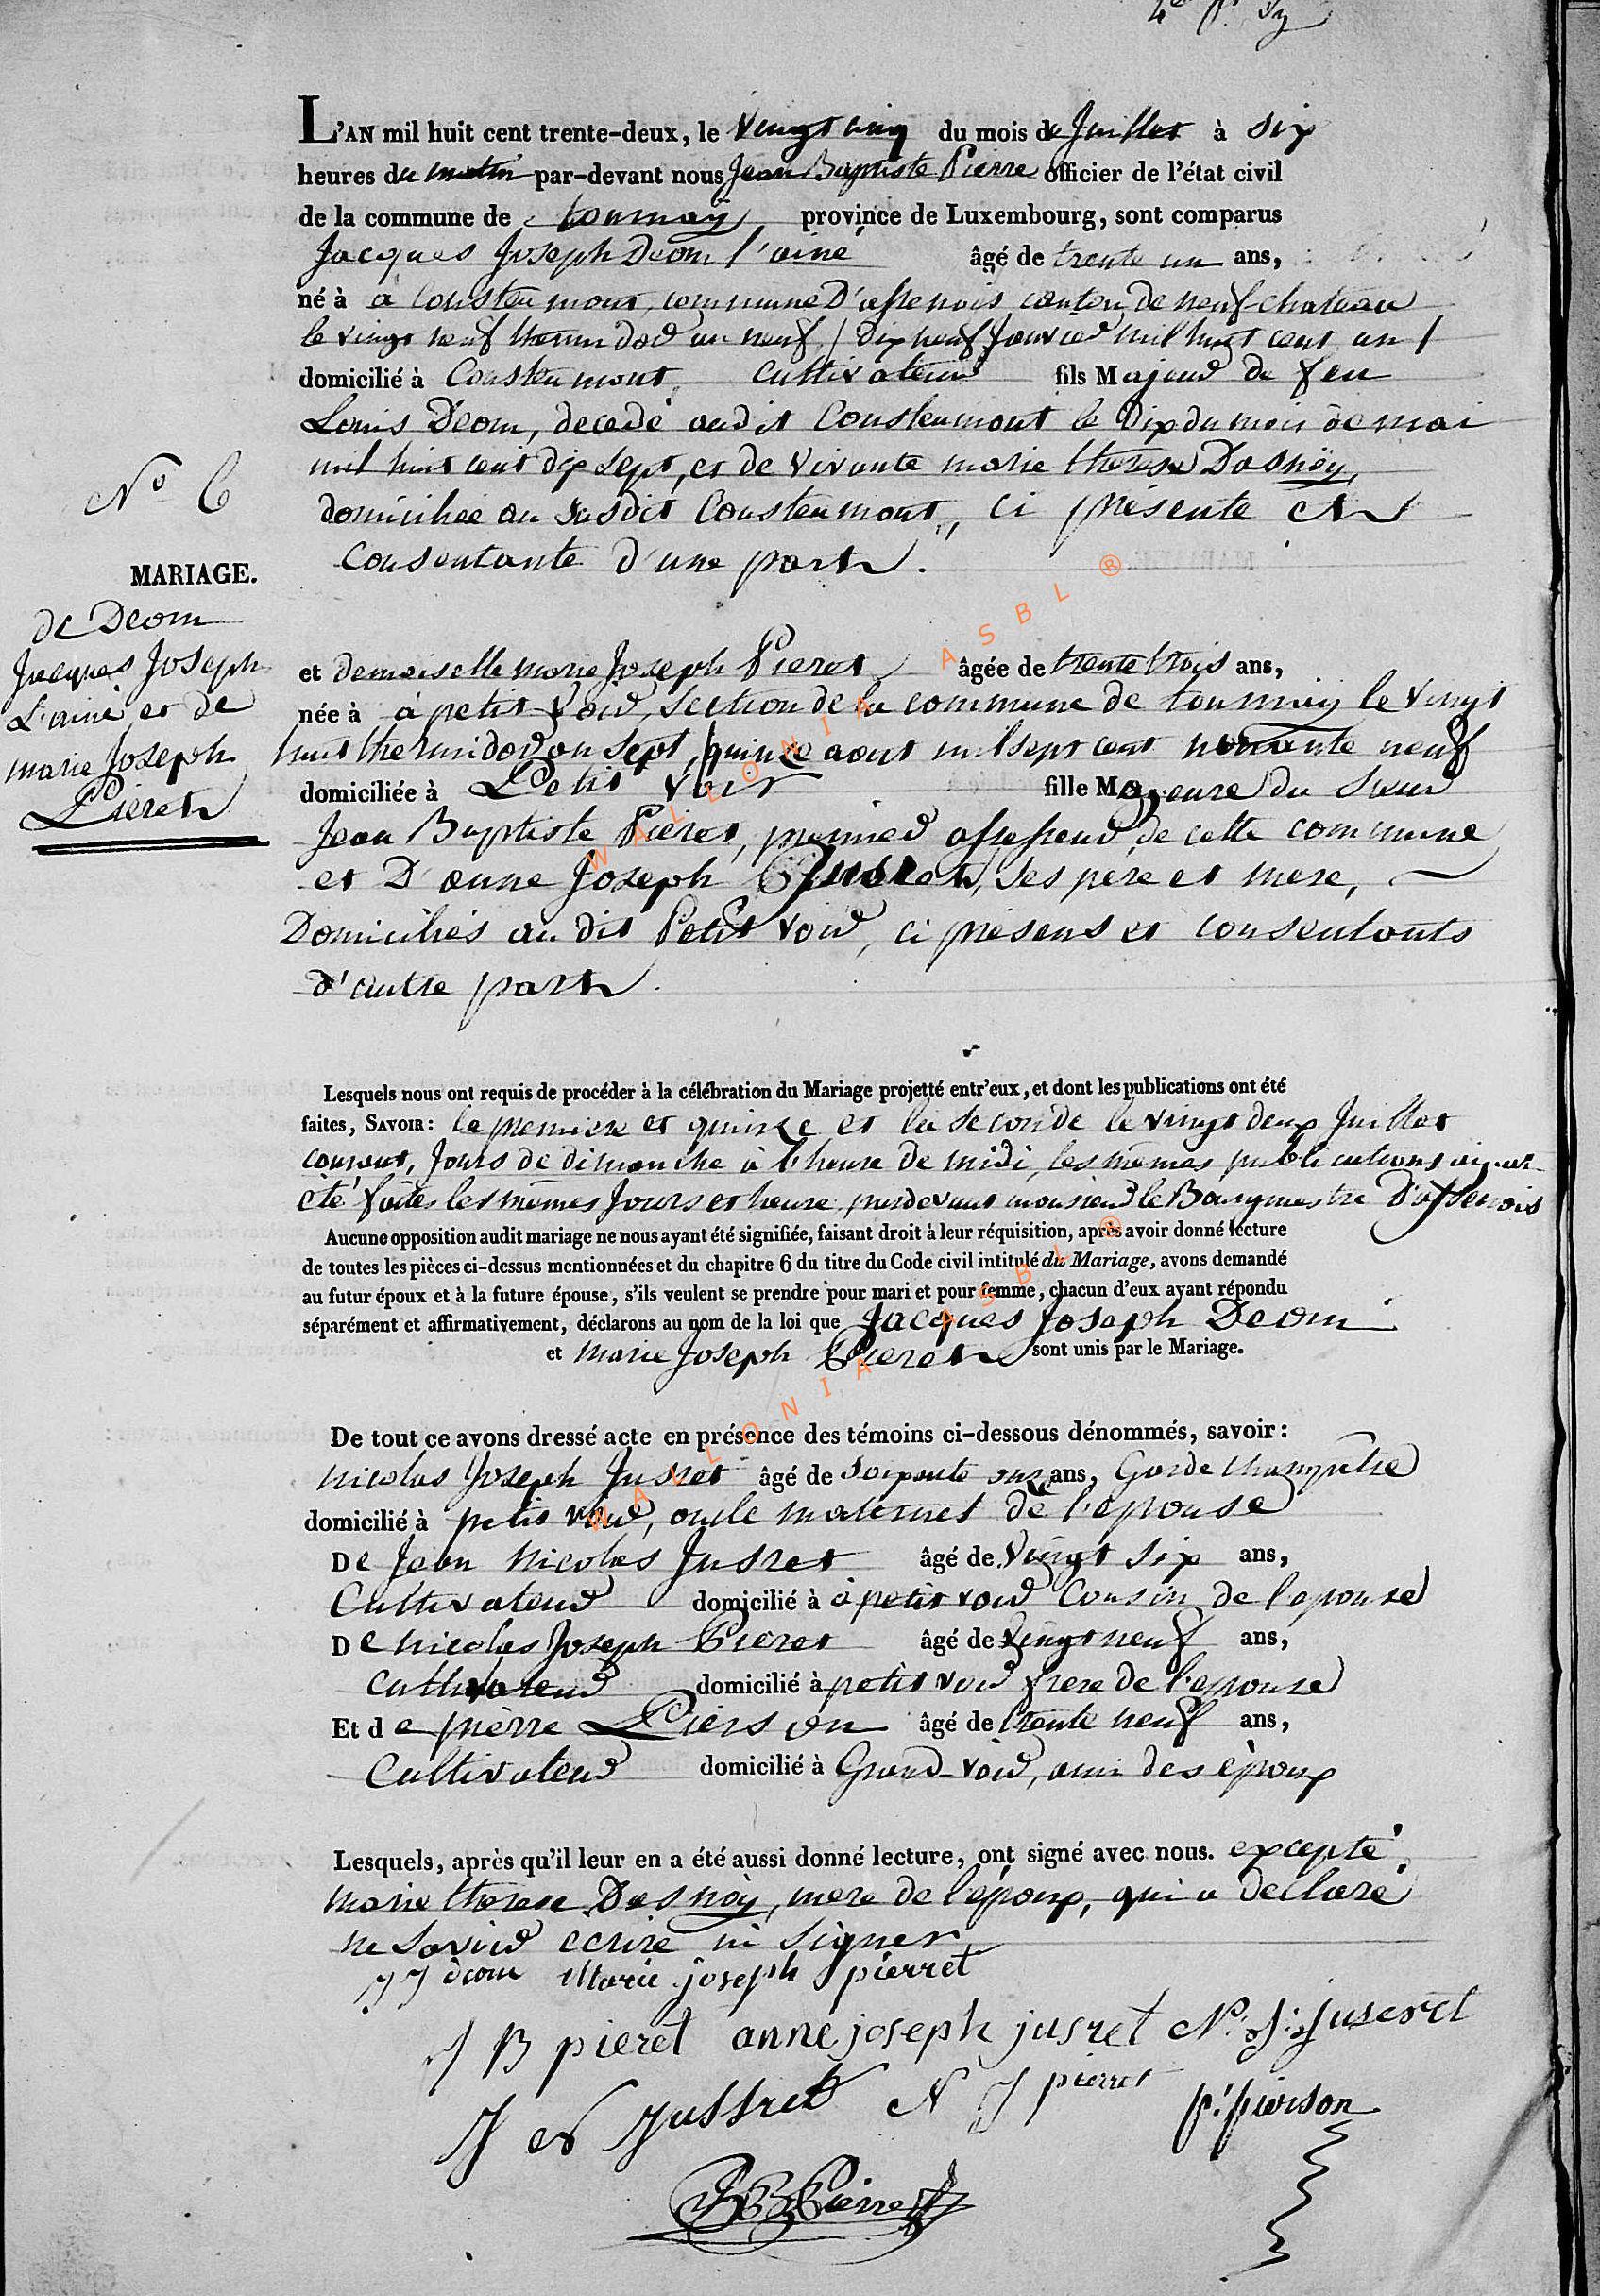 L'AN mil huit cent trente-deux, le vingt cinq du mois de Juillet à six
heures du matin par-devant nous Jean Baptiste Pierre officier de l'état civil
de la commune de tournay province de Luxembourg, sont comparus
Jacques Joseph Deom l'ainé âgé de trente un ans,
né à a Cousteumont, commune D'assenois canton de neufchateau
le vingt neuf thermidor an neuf / dix neuf mil huit cent un /
domicilié à Cousteumont cultivateur fils Majeur de feu
Louis Déom, decedé audit Cousteumont le dix du mois de mai
mil huit cent dix sept, et de vivante marie therese Dasnoÿ,
domiciliée au susdit Cousteumont, ci présente et
consentante d'une part.
N° 6
MARIAGE.
de Deom
Jacques Joseph
L'ainé et de
marie Joseph
Pieret
et demoiselle marie Joseph Pieret âgée de trente trois ans,
née à à petit voir, section de la commune de tournay le vingt
huit thermidor an sept, quinze aout mil sept cent nonante neuf
domiciliée à Petit voir fille Majeure du sieur
Jean Baptiste Pieret, premier assesseur de cette commune
et D'anne Joseph Jusret, ses père et mere,
Domiciliés au dit Petit voir, ci présens et consentants
d'autre part.
Lesquels nous ont requis de procéder à la célébration du Mariage projetté entr'eux, et dont les publications ont été
faites, SAVOIR: la premiere et quinze et la seconde le vingt deux Juillet
courant, Jours de dimanche à l'heure de midi, les mêmes publications ayant
été faites les mêmes Jours et heure, pardevant monsieur le Bourgmestre D'assenois
Aucune opposition audit mariage ne nous ayant été signifiée, faisant droit à leur réquisition, après avoir donné lecture
de toutes les pièces ci-dessus mentionnées et du chapitre 6 du titre du Code civil intitulé du Mariage, avons demandé
au futur époux et à la future épouse, s'ils veulent se prendre pour mari et pour femme, chacun d'eux ayant répondu
séparément et affirmativement, déclarons au nom de la loi que Jacques Joseph Deom
et marie Joseph Pieret sont unis par le Mariage.
De tout ce avons dressé acte en présence des témoins ci-dessous dénommés, savoir:
nicolas Joseph Jusret âgé de soixante onze ans, Garde champêtre
domicilié à petit voir, oncle maternel de l'epouse
De Jean nicolas Jusret âgé de vingt six ans,
Cultivateur domicilié à à petit voir Cousin de l'epouse
De nicolas Joseph Pieret âgé de vingt neuf ans,
Cultivateur domicilié à petit voir frere de l'epouse
Et de pierre Pierson âgé de trente neuf ans,
Cultivateur domicilié à Grand-voir, ami des époux
Lesquels, après qu'il leur en a été aussi donné lecture, ont signé avec nous. excepté
marie therese Dasnoÿ, mere de l'époux, qui a declaré
ne savoir ecrire ni signer
J J déom Marie joseph pierret
J B pieret anne joseph jusret N. J. Juseret
J N Jussret N J pierret p. pierson
J B Pierre
WALLONIA ASBL ®
WALLONIA ASBL ®